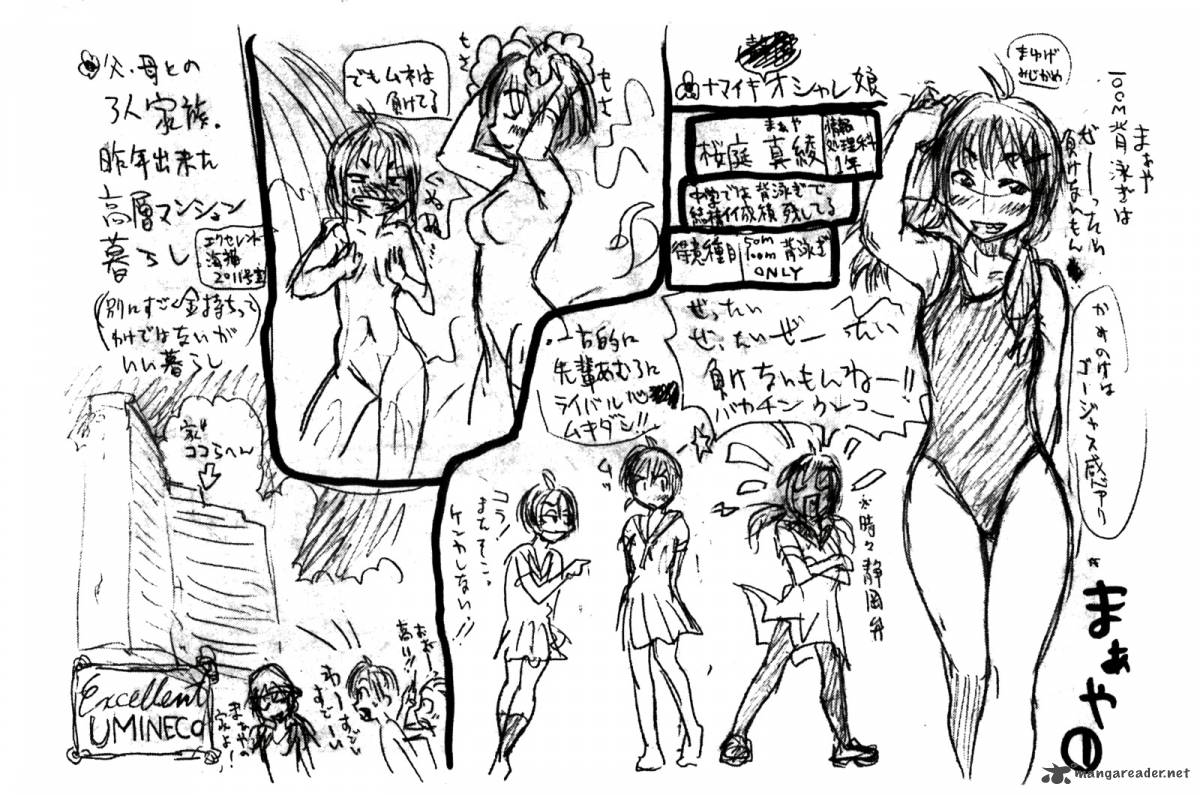 まゆげ
みじかめ
まぁや
100m背泳ぎは
ぜーったい
負けないもん
かみのけは
ゴージャス感アリ
まぁや①
ナマイキオシャレ娘
まぁや
桜庭 真綾
情報
処理科
1年
中学では背泳ぎで
結構イイ成績残してる
得意種目
50m
100m 背泳ぎ
ONLY
ぜったい
ぜったいぜーったい
負けないもんねー!!
もさ
もさ
でもムネは
負けてる
ぐぬぬ…
一方的に
先輩あむろに
ライバル心
ムキダシ!!
ムッ
コラ!
またそこっ
ケンカしない!!
※時々静岡弁
父・母との
3人家族.
昨年出来た
高層マンション
暮らし
エクセレント
海猫
2011号室
(別にすごく金持ちって
わけではないが
いい暮らし
家
ココらへん
Excellent
UMINECO
まぁやの
家よ!
わーすごい
すごーい
高い!!
mangareader.net